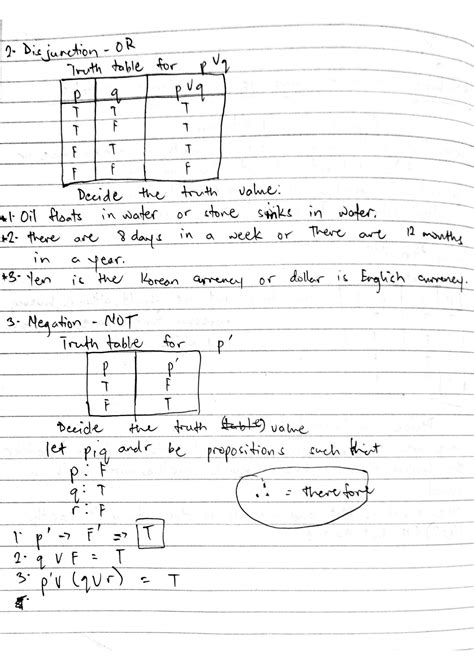 2. Disjunction - OR
Truth table for p ∨ q
p q p ∨ q
T T T
T F T
F T T
F F F
Decide the truth value:
*1. Oil floats in water or stone sinks in water.
*2. there are 8 days in a week or There are 12 months
in a year.
*3. Yen is the Korean currency or dollar is English currency.
3. Negation - NOT
Truth table for p'
p p'
T F
F T
Decide the truth (table) value
let p, q and r be propositions such that
p: F
q: T
r: F
∴ = therefore
1. p' → F' => T
2. q ∨ F = T
3. p' ∨ (q ∪ r) = T